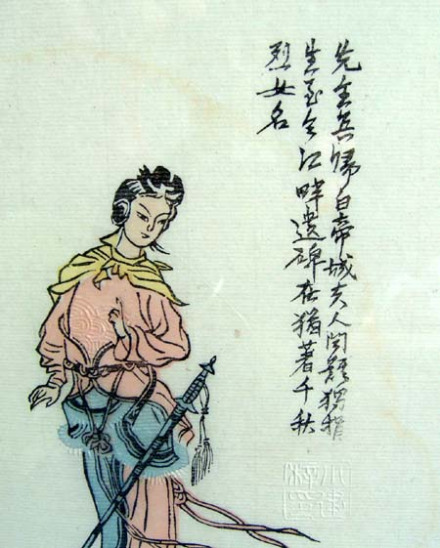 先主兵歸白帝城夫人聞難獨捐
生至今江畔遺碑在猶著千秋
烈女名